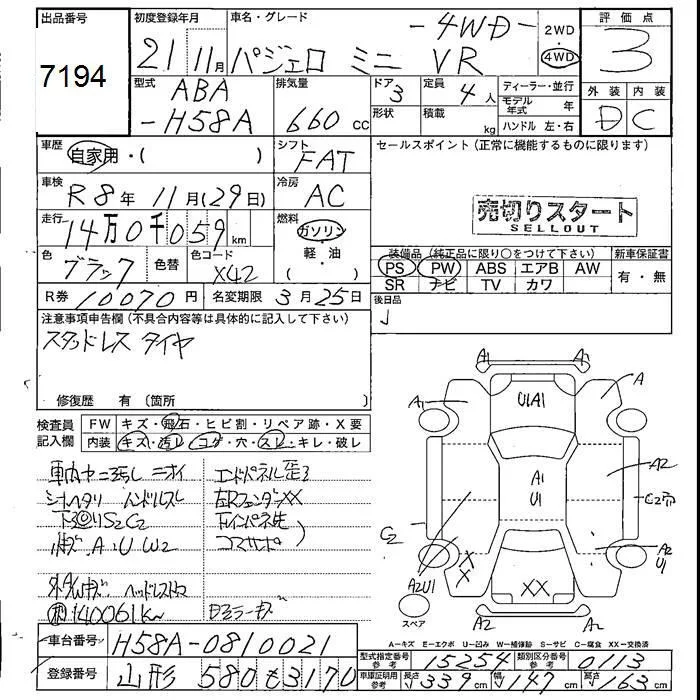 出品番号 初度登録年月 車名・グレード 評価点
7194 21年 11月 パジェロ ミニ VR -4WD- 2WD 4WD 3
型式 排気量 ドア 定員 ディーラー・並行 外装 内装
ABA 660 cc 3 4人 モデル年式 年 D C
-H58A 形状 積載 kg ハンドル 左・右
車歴 自家用・( ) シフト FAT セールスポイント (正常に機能するものに限ります)
車検 R8年 11月(29日) 冷房 AC
売切りスタート
SELLOUT
走行 14万0千059km 燃料 ガソリン
軽・油
( )
色 ブラック 色替 色コード X42
装備品 (純正品に限り○をつけて下さい) 新車保証書
PS PW ABS エアB AW 有・無
SR ナビ TV カワ
R券 10070円 名変期限 3月25日 後日品
注意事項申告欄(不具合内容等は具体的に記入して下さい)
スタッドレス タイヤ
修復歴 有 (箇所 )
検査員 FW キズ・飛石・ヒビ割・リペア跡・X要
記入欄 内装 キズ・汚レ・コゲ・穴・スレ・キレ・破レ
車内ヤニ汚レ ニオイ エンドパネル歪ミ
シートヘタリ ハンドルスレ 左RフェンダーXX
下廻リS2C2
A・U W2 コマサポ
140061km
A1 A1
A1 U1A1 A
A1
U1 A2
C2
C2
X
X A2
U1
A2U1 XX
スペア A2 A2
A=キズ E=エクボ U=凹み W=補修跡 S=サビ C=腐食 XX=交換済
車台番号 H58A-0810021
型式指定番号 参考 15254 類別区分番号 参考 0113
登録番号 山形 580 そ3170
車庫証明用 参考 長さ 339cm 幅 147cm 高さ 163cm